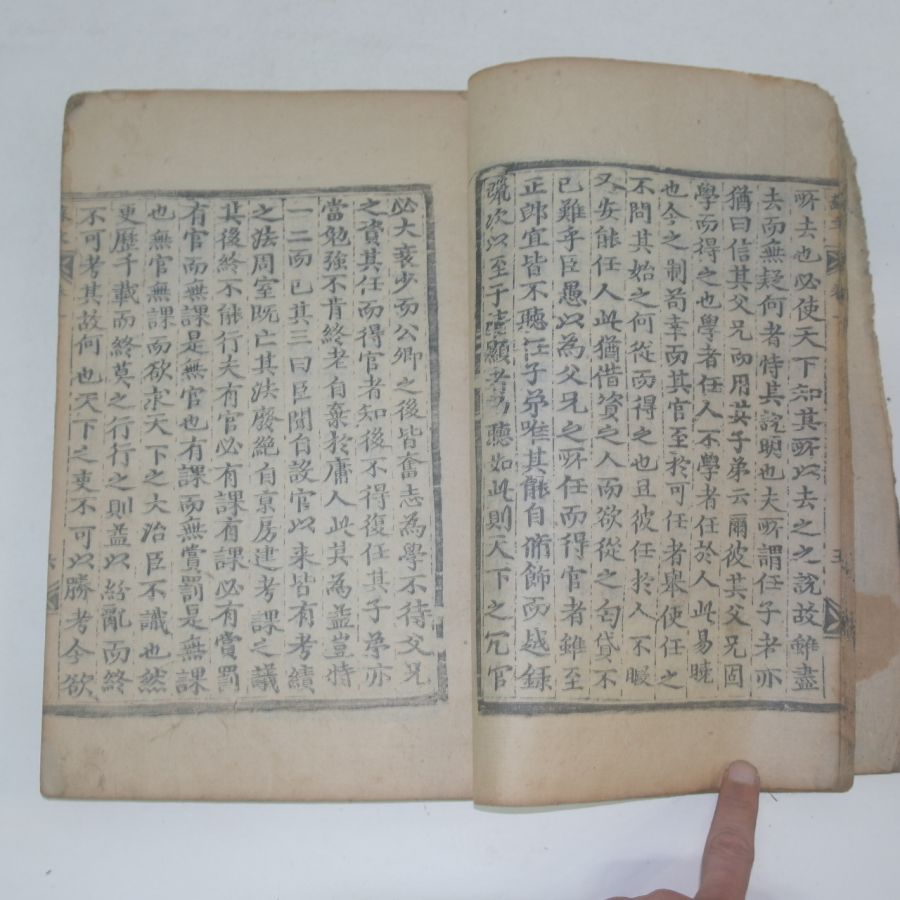 所去也必使天下知其所以去之之說故雖盡
去而無疑何者恃其說明也夫所謂任子者亦
猶曰信其父兄而用其子弟云爾彼其父兄固
學而得之也學者任人不學者任於人此易曉
也今之制苟幸而其官至於可任者舉使任之
不問其始之何從而得之也且彼任於人不暇
又安能任人此猶借資之人而欲從之匄貸不
已難乎臣愚以為父兄之所任而得官者雖至
正郎宜皆不聽任子弟唯其能自脩飾而越錄
躐次以至于清顯者乃聽如此則天下之冗官
必大衰少而公卿之後皆奮志為學不待父兄
之資其任而得官者知後不得復任其子弟亦
當勉強不肯終老自棄於庸人此其為益豈特
一二而已其三曰臣聞自設官以來皆有考績
之法周室既亡其法廢絕自京房建考課之議
其後終不能行夫有官必有課有課必有賞罰
有官而無課是無官也有課而無賞罰是無課
也無官無課而欲求天下之大治臣不識也然
更歷千載而終莫之行行之則益以紛亂而終
不可考其故何也天下之吏不可以勝考今欲